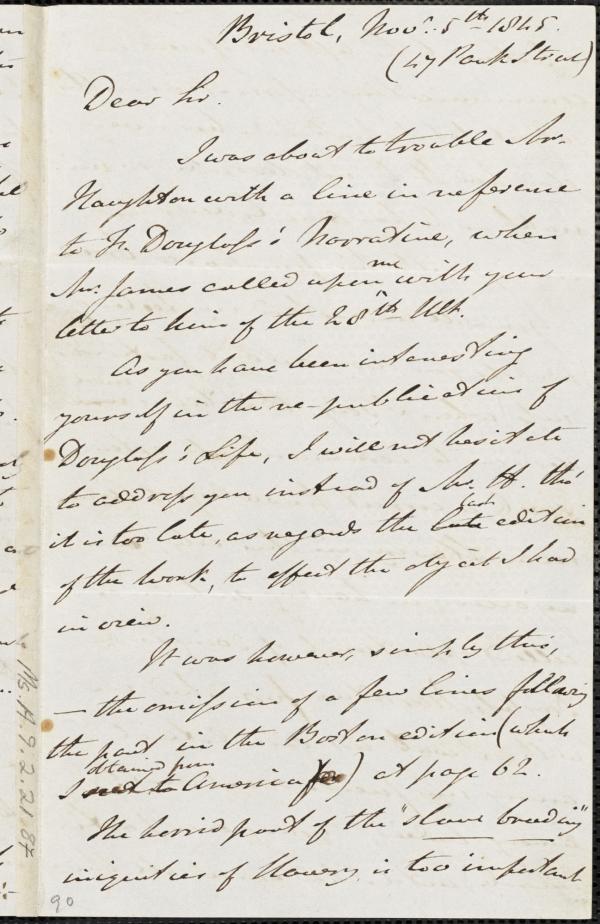 Bristol, Nov.r 5th 1845.
(47 Park Street)
Dear Sir.
I was about to trouble Mr.
Haughton with a line in reference
to F. Douglass's Narrative, when
Mr. James called upon me with your
letter to him of the 28th Ult.
As you have been interesting
yourself in the re-publication of
Douglass's Life, I will not hesitate
to address you instead of Mr. H. tho'
it is too late, as regards the last edition
of the work, to effect the object I had
in view.
It was however, simply this,
— the omission of a few lines following
the part in the Boston edition (which
I obtained from America) at page 62.
The horrid part of the "slave breeding"
iniquities of slavery, is too important
Ms. A. 9. 2. 21. 87
90